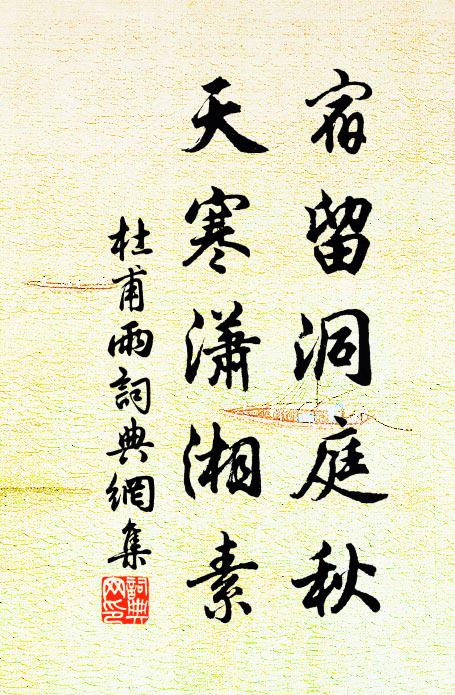 宿留洞庭秋
天寒瀟湘素
杜甫雨詞典網集
詞典
网印